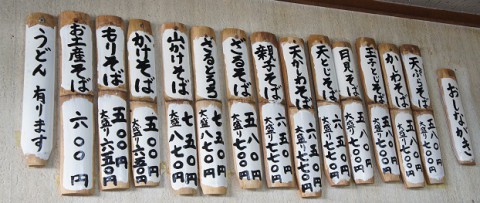 おしながき
天ぷらそば
六五〇円
大盛り七七〇円
かしわそば
五八〇円
大盛り七〇〇円
玉子とじそば
五八〇円
大盛り七〇〇円
月見そば
五八〇円
大盛り七〇〇円
天とじそば
六五〇円
大盛り七七〇円
天かわそば
六五〇円
大盛り七七〇円
親子そば
六五〇円
大盛り七七〇円
ざるそば
五八〇円
大盛り七〇〇円
ざるとろろ
七五〇円
大盛り八七〇円
山かけそば
七五〇円
大盛り八七〇円
かけそば
五〇〇円
大盛り六五〇円
もりそば
五〇〇円
大盛り六五〇円
お土産そば
六〇〇円
うどん有ります